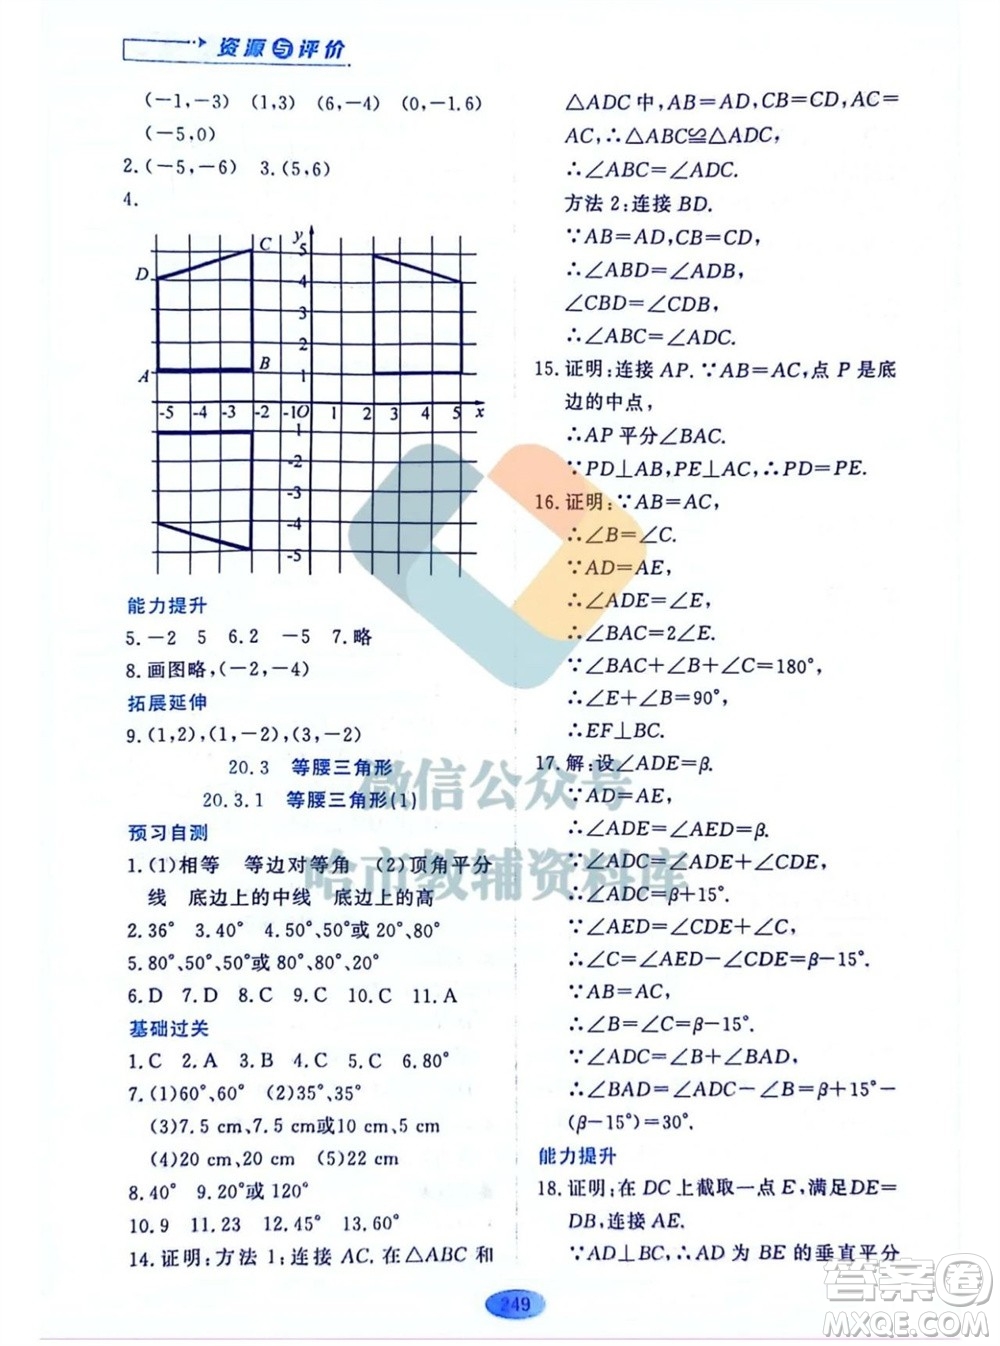 资源与评价
(－1,－3) (1,3) (6,－4) (0,－1.6)
(－5,0)
2.(－5,－6) 3.(5,6)
4.
y
C
5
D
4
3
2
A
B
1
-5 -4 -3 -2 -1O 1 2 3 4 5 x
1
-2
-3
-4
-5
能力提升
5.－2 5 6.2 －5 7.略
8.画图略,(－2,－4)
拓展延伸
9.(1,2),(1,－2),(3,－2)
20.3 等腰三角形
20.3.1 等腰三角形(1)
预习自测
1.(1)相等 等边对等角 (2)顶角平分
线 底边上的中线 底边上的高
2.36° 3.40° 4.50°,50°或20°,80°
5.80°、50°、50°或 80°、80°、20°
6.D 7.D 8.C 9.C 10.C 11.A
基础过关
1.C 2.A 3.B 4.C 5.C 6.80°
7.(1)60°,60° (2)35°,35°
(3)7.5 cm,7.5 cm或10 cm,5 cm
(4)20 cm,20 cm (5)22 cm
8.40° 9.20°或 120°
10.9 11.23 12.45° 13.60°
14.证明:方法 1:连接 AC.在△ABC 和
△ADC 中,AB＝AD,CB＝CD,AC＝
AC,∴△ABC≌△ADC,
∴∠ABC＝∠ADC.
方法 2:连接 BD.
∵AB＝AD,CB＝CD,
∴∠ABD＝∠ADB,
∠CBD＝∠CDB,
∴∠ABC＝∠ADC.
15.证明:连接 AP.∵AB＝AC,点 P 是底
边的中点,
∴AP 平分∠BAC.
∵PD⊥AB,PE⊥AC,∴PD＝PE.
16.证明:∵AB＝AC,
∴∠B＝∠C.
∵AD＝AE,
∴∠ADE＝∠E,
∴∠BAC＝2∠E.
∵∠BAC＋∠B＋∠C＝180°,
∴∠E＋∠B＝90°,
∴EF⊥BC.
17.解:设∠ADE＝β.
∵AD＝AE,
∴∠ADE＝∠AED＝β.
∵∠ADC＝∠ADE＋∠CDE,
∴∠ADC＝β＋15°.
∵∠AED＝∠CDE＋∠C,
∴∠C＝∠AED－∠CDE＝β－15°.
∵AB＝AC,
∴∠B＝∠C＝β－15°.
∵∠ADC＝∠B＋∠BAD,
∴∠BAD＝∠ADC－∠B＝β＋15°－
(β－15°)＝30°.
能力提升
18.证明:在 DC 上截取一点 E,满足DE＝
DB,连接 AE.
∵AD⊥BC,∴AD 为 BE 的垂直平分
249
微信公众号
哈市教辅资料库
答案卷
MXQE.COM